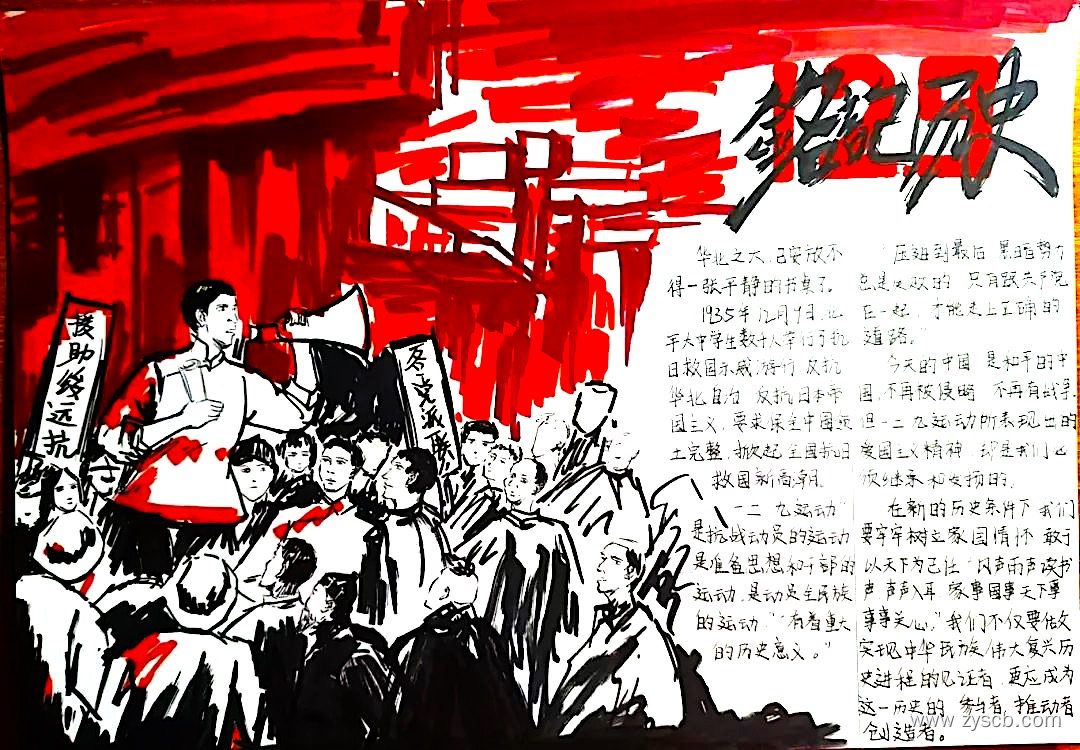 铭记历史
12.9
援助绥远抗
华北之大,已安放不
得一张平静的书桌了。
1935年12月9日,北
平大中学生数千人举行了抗
日救国示威游行,反抗
华北自治,反抗日本帝
国主义,要求保全中国领
土完整,掀起全国抗日
救国新高潮。
“一二·九运动”
是抗战动员的运动
是准备思想和干部的
运动,是动员全民族
的运动,“有着重大
的历史意义。”
“压迫到最后 黑暗势力
总是失败的 只有跟共产党
在一起,才能走上正确的
道路。”
今天的中国 是和平的中
国,不再被侵略 不再有战寻,
但一二九运动所表现出的
爱国主义精神,却是我们必
须继承和发扬的。
在新的历史条件下 我们
要牢牢树立家国情怀 敢于
以天下为己任“风声雨声读书
声 声声入耳 家事国事天下事
事事关心,”我们不仅要做
实现中华民族伟大复兴历
史进程的见证者,更应成为
这一历史的 参与者,推动者
创造者。
www.zyscb.com